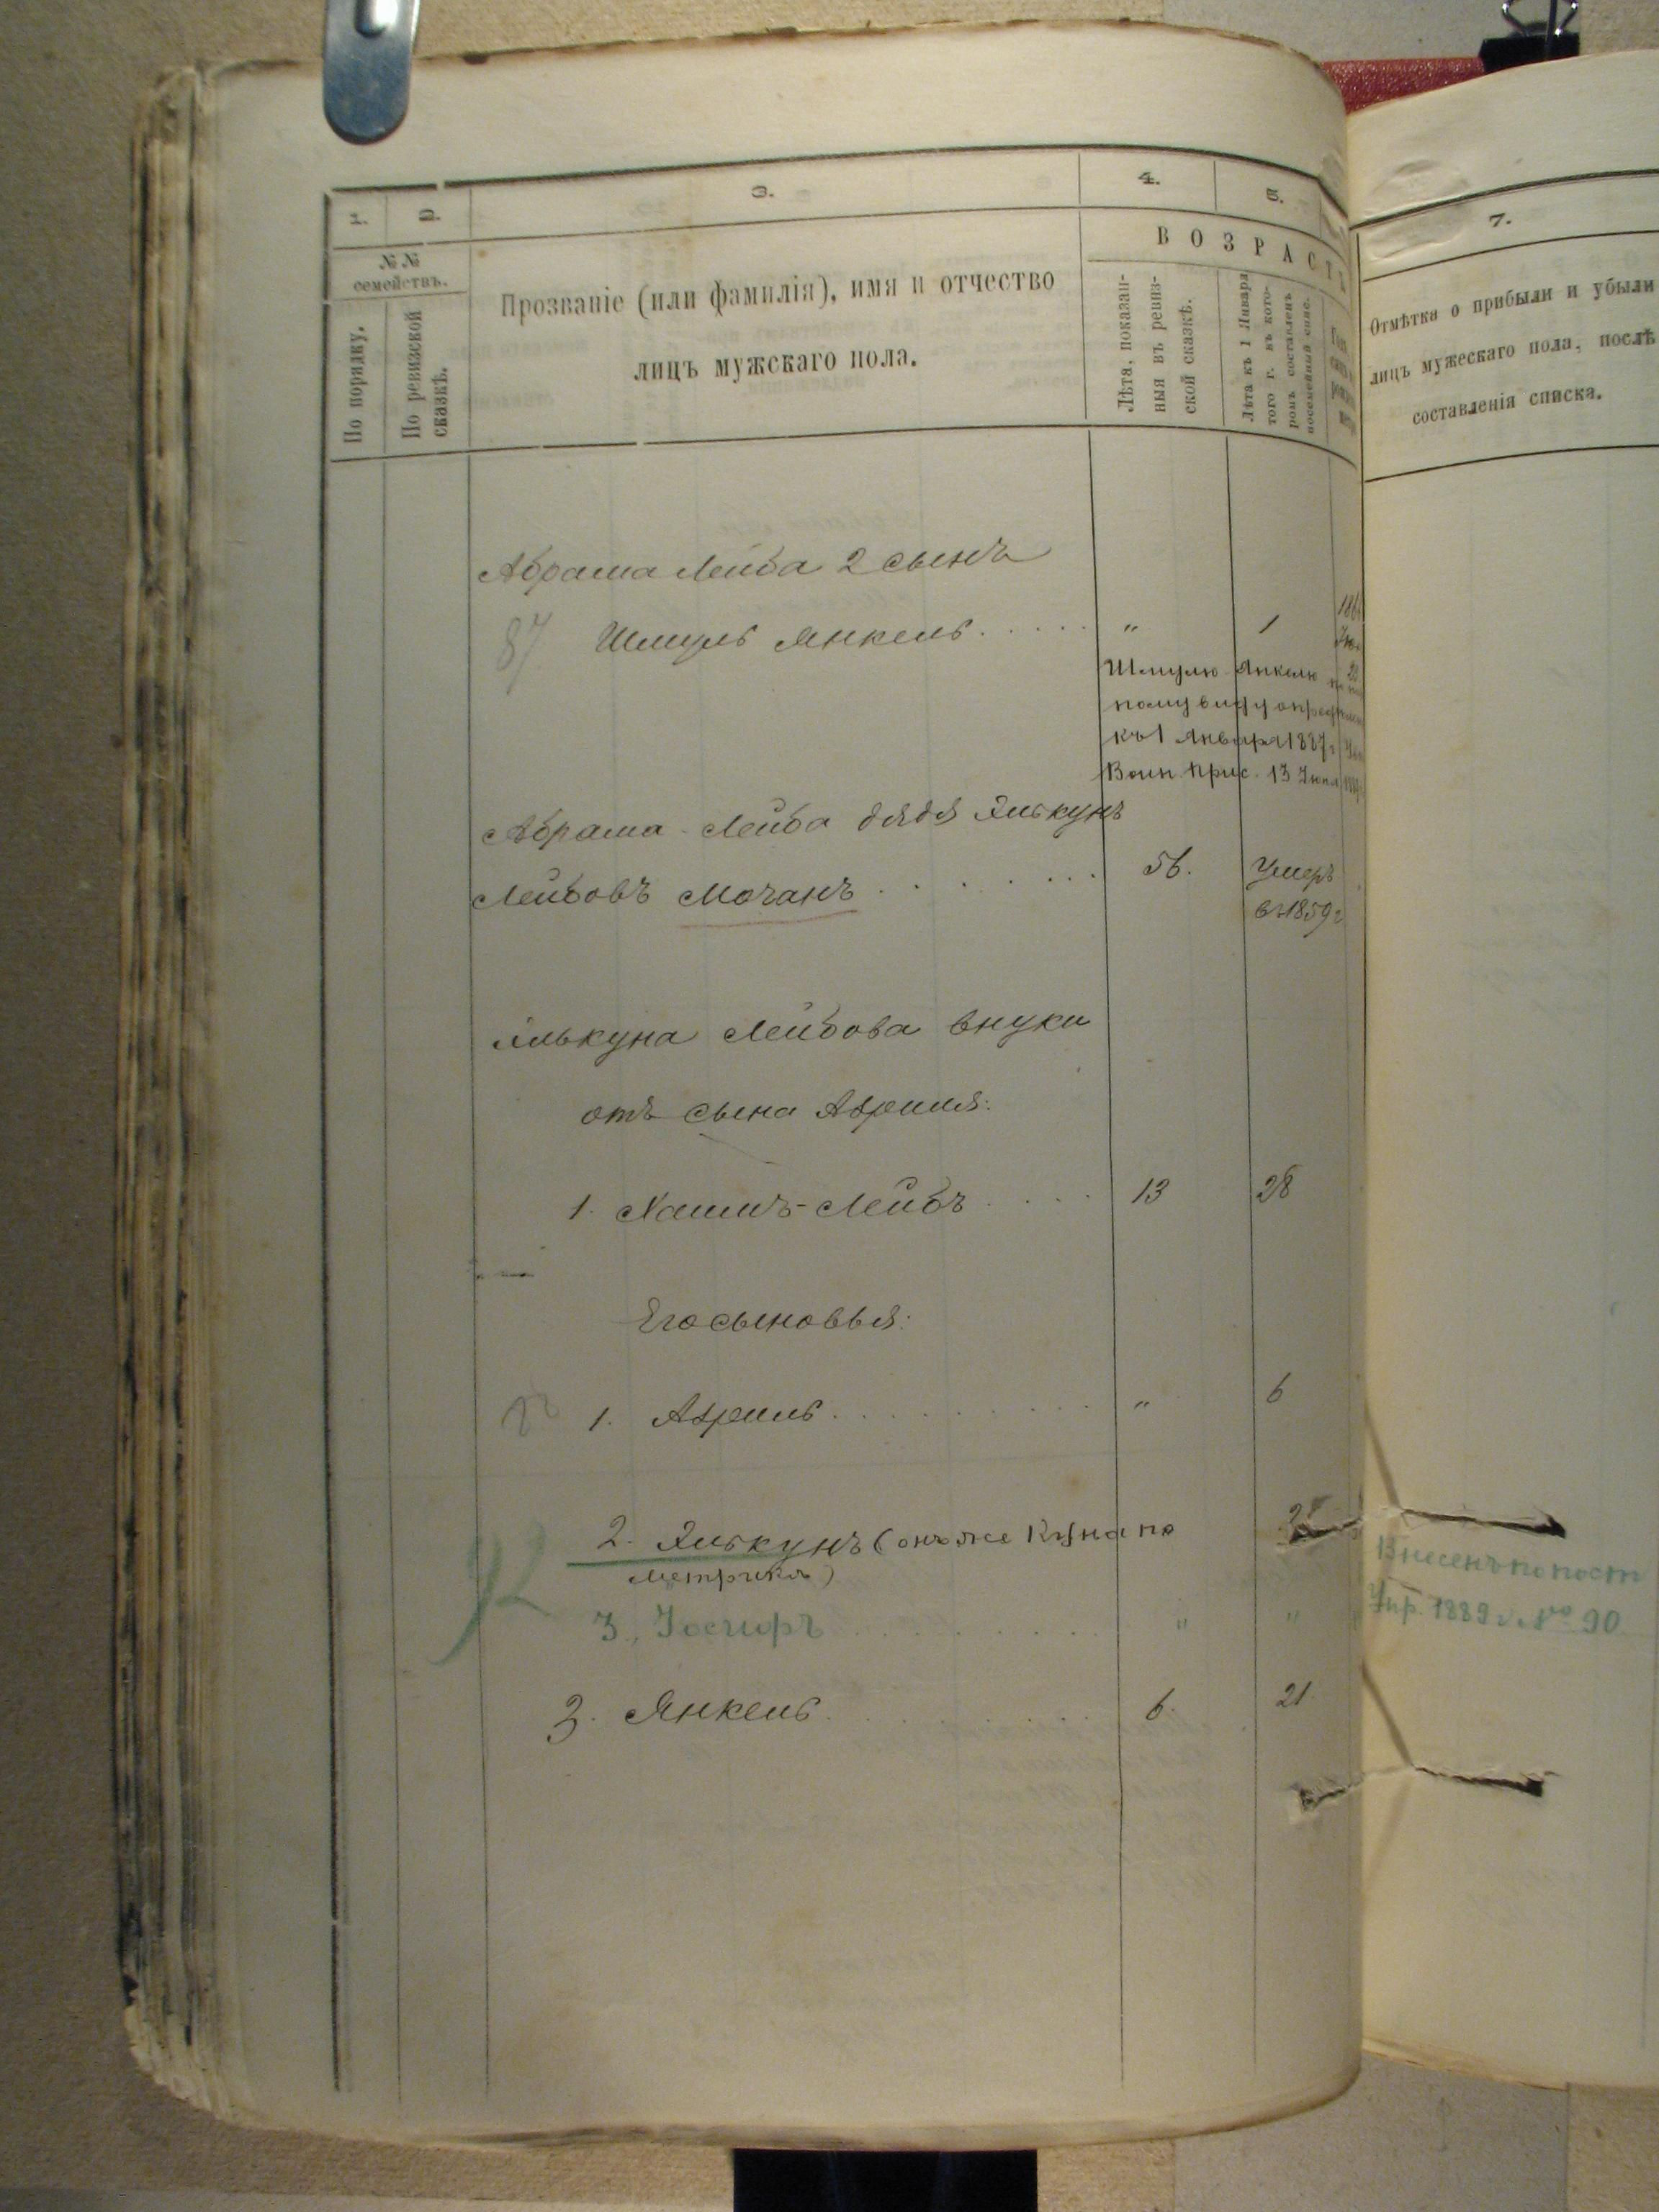 1.
2.
3.
4.
5.
7.
№№
семействъ.
По порядку.
По ревизской
сказкѣ.
Прозваніе (или фамилія), имя и отчество
лицъ мужскаго пола.
ВОЗРАСТЪ
Лѣта, показан-
ныя въ ревиз-
ской сказкѣ.
Лѣта къ 1 Января
того г. въ кото-
ромъ составленъ
посемейный спис.
Отмѣтка о прибыли и убыли
лицъ мужескаго пола, послѣ
составленія списка.
Абрама Лейба 2 сынъ
87 Шмуль Янкель . . . . . " 1
Шмулю Янкелю
къ 1 Января 1887 г
Воин. Прис. 13
Абрама-Лейба дядя Элькунъ
Лейбовъ Мочанъ . . . . . . . 56. Умеръ
въ 1859 г
Элькуна Лейбова внуки
отъ сына Абриля:
1. Хаимъ-Лейбъ . . . . 13 28
Его сыновья:
1. Абриль . . . . . . . . . " 6
2. Элькунъ (онъ же Куна по
метрикѣ)
3. Іосифъ . . . . . . . . . " "
Внесенъ по пост
Упр. 1889 г. № 90
3. Янкель . . . . . . . . . 6. 21